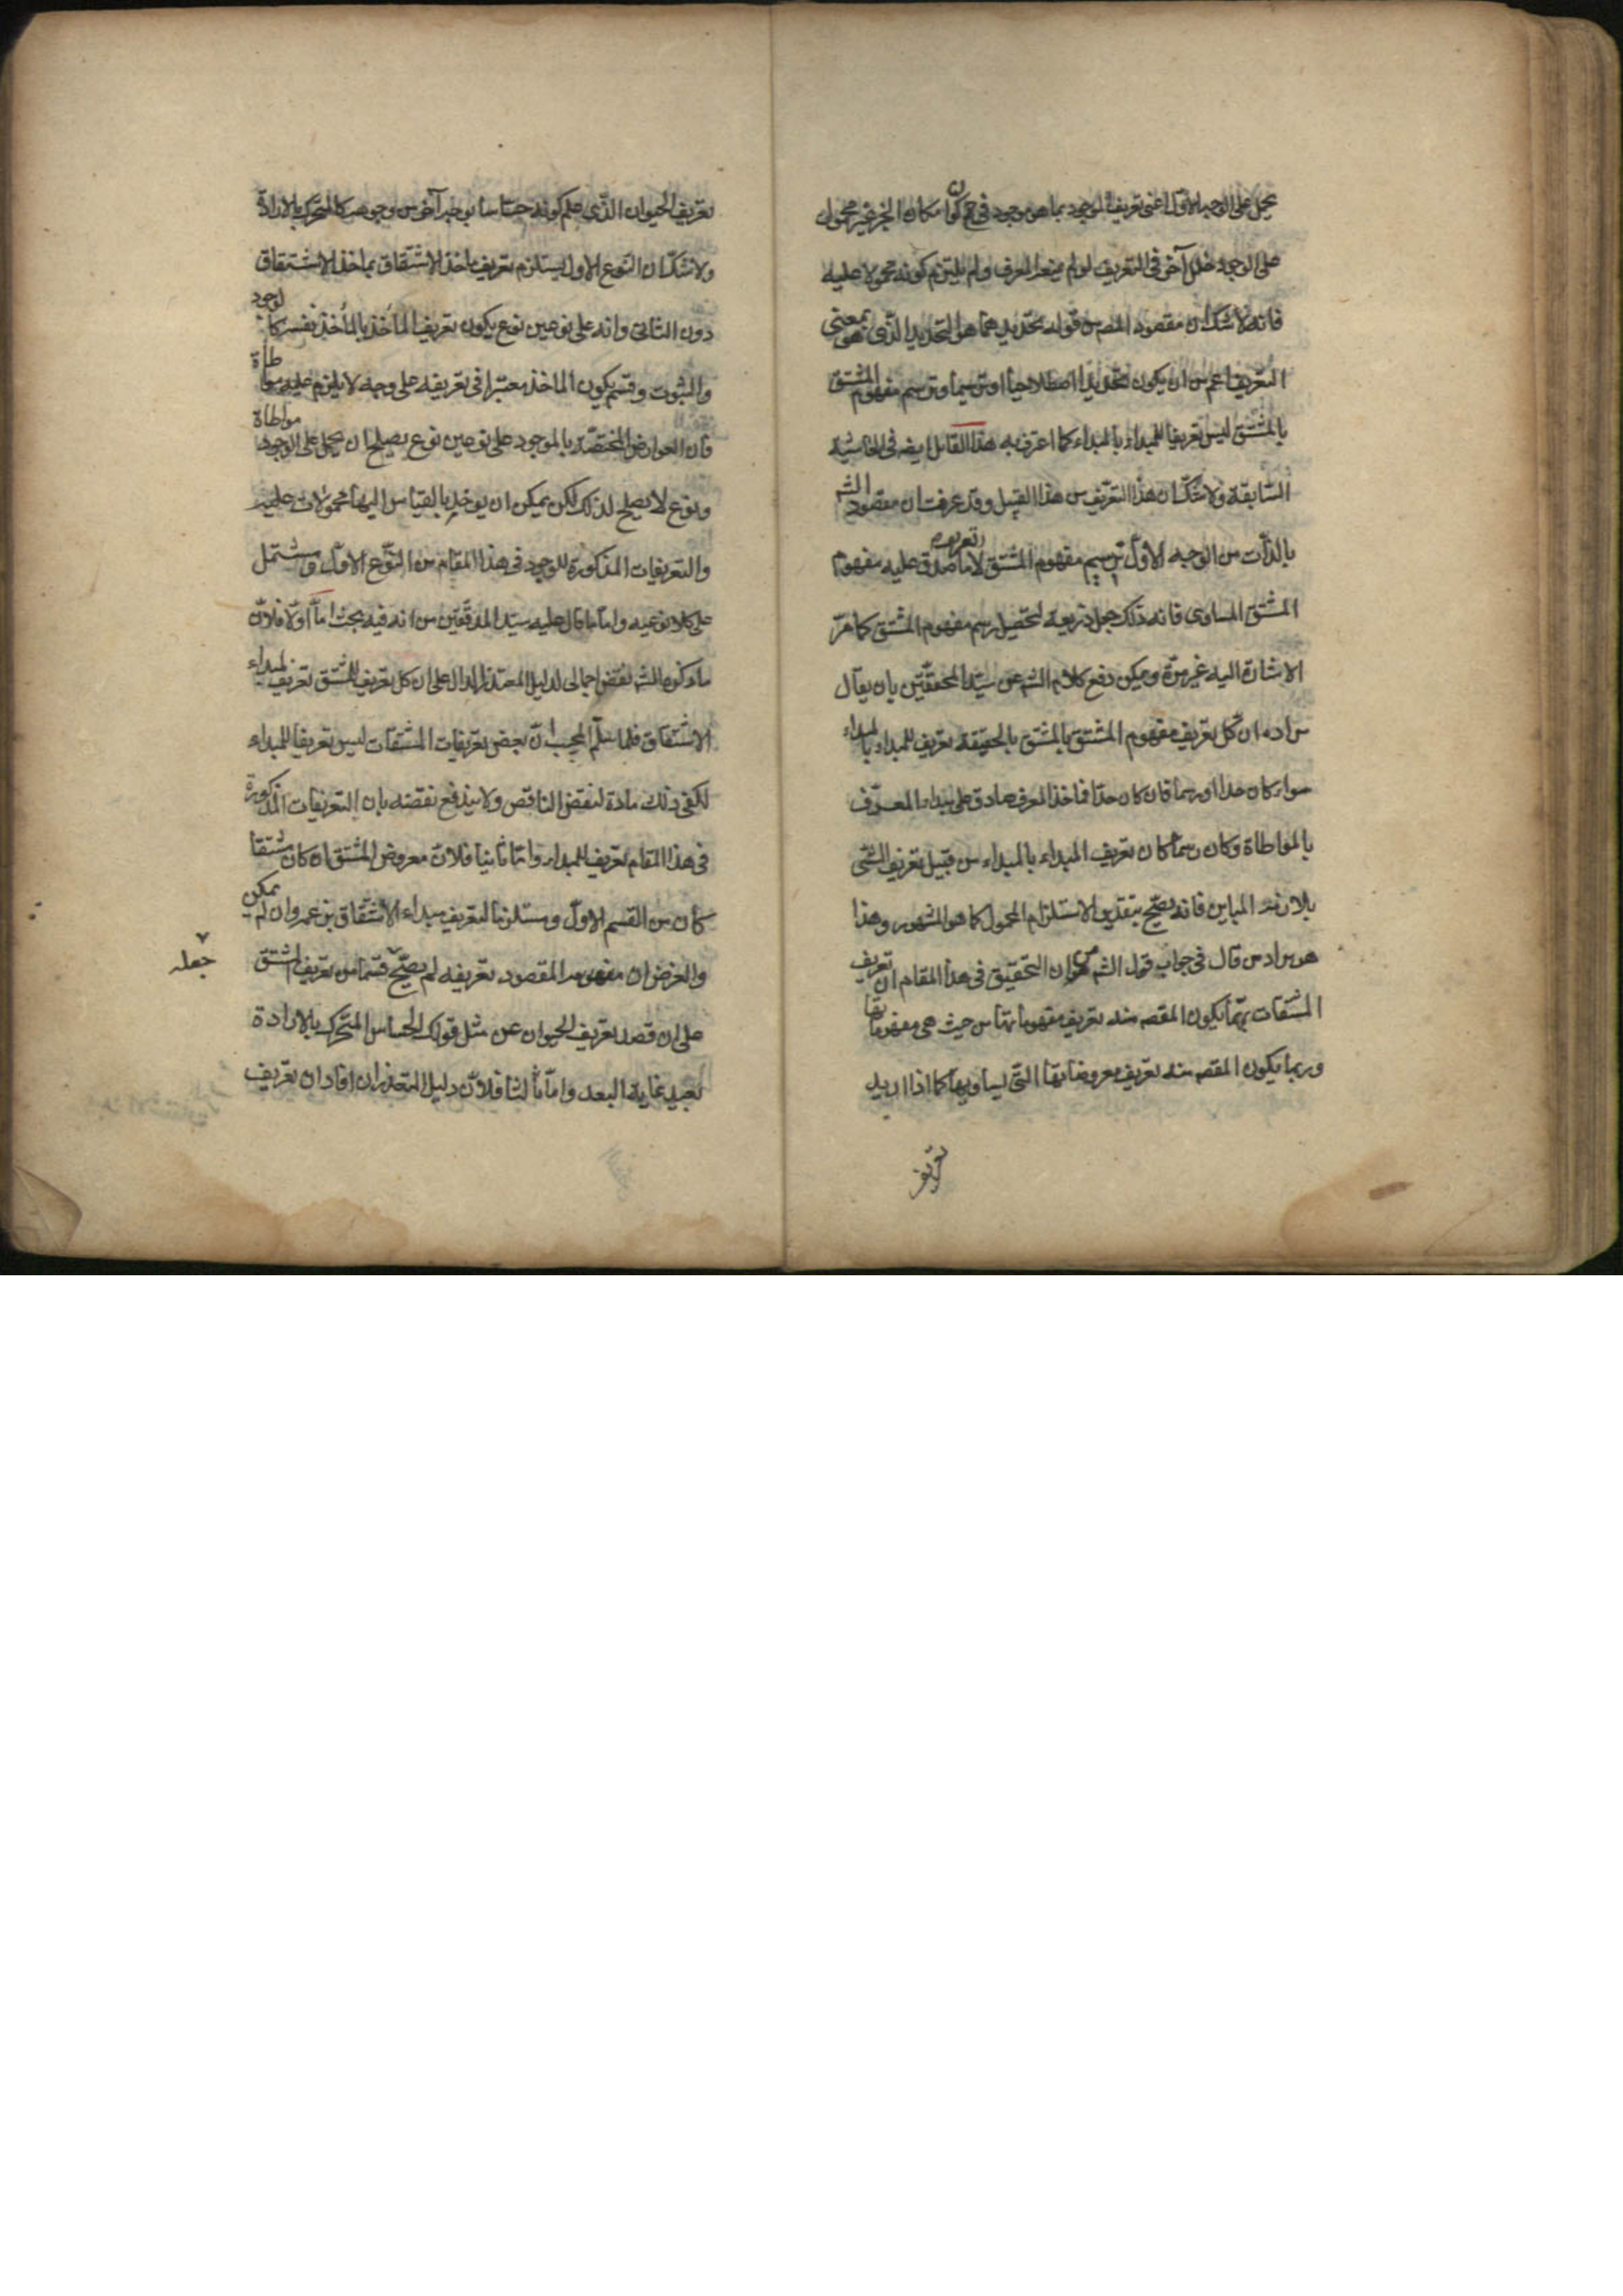 يحمل على الوجه الاول اعنى تعريف الوجود بما هو موجود فى كون امكان الخبر غير محمول
على الوجود خلل آخر فى التعريف لو لم يمنعه المعرف ولم يلتزم كونه محمولا عليه
فانه لا شك ان مقصود المص من قوله تحديدهما هو التحديد الذى هو بمعنى
التعريف اعم من ان يكون تحديدا اصطلاحيا او ترسيما وترسيم مفهوم المشتق
بالمشتق ليس تعريفا للمبداء بالمبداء كما اعترف به هذا القائل ايضه فى الحاشية
السابقة ولا شك ان هذا التعريف من هذا القبيل وقد عرفت ان مقصود الشه
بالذات من الوجه الاول ترسيم مفهوم المشتق لا تعريف ما صدق عليه مفهوم
المشتق المساوى فانه ذلك جعل ذريعه لتحصيل رسم مفهوم المشتق كما مر
الاشارة اليه غير مرة ويمكن دفع كلام الشه عن سيد المحققين بان يقال
مراده ان كل تعريف مفهوم المشتق بالمشتق بالحقيقة تعريف للمبداء بالمبداء
سواء كان حدا او رسما فان كان حدا فماخذ المعرف صادق على مبداء المعرف
بالمواطاة وكان رسما كان تعريف المبداء بالمبداء من قبيل تعريف الشئ
بلازمه المباين فانه يصح بتقدير الاستلزام المحمول كما هو المشهور وهذا
هو مراد من قال فى جواب قول الشه من ان التحقيق فى هذا المقام ان تعريف
المشتقات ربما يكون المقصه منه تعريف مفهوماتها من حيث هى مفهوماتها
وربما يكون المقصه منه تعريف معروضاتها التى يساويها كما اذا اريد
تعريف
تعريف الحيوان الذى علم كونه حساسا بوجه آخر من وجوهه كالمتحرك بالارادة
ولا شك ان النوع الاول يستلزم تعريف ماخذ الاشتقاق بماخذ الاشتقاق
دون الثانى وانه على نوعين نوع يكون تعريف المأخذ بالمأخذ نفسه كالوجود
والثبوت وقسم يكون الماخذ معتبرا فى تعريفه على وجه لا يلزم عليه مواطاة
فان العوارض المختصة بالموجود على نوعين نوع يصلح ان يحمل على الوجود مواطاة
ونوع لا يصلح لذلك لكن يمكن ان يوخذ بالقياس اليها محمولات عليه
والتعريفات المذكورة للوجود فى هذا المقام من النوع الاول ومشتمل
على كلا نوعيه واما ما قال عليه سيد المدققين من انه فيه بحث اما اولا فلان
ما ذكره الشه نقض اجمالى لدليل المعتذر الدال على ان كل تعريف للمشتق تعريف لمبداء
الاشتقاق فلما سلم المجيب ان بعض تعريفات المشتقات ليس تعريفا للمبداء
لكفى ذلك مادة لنقض الناقض ولا يندفع نقضه بان التعريفات المذكورة
فى هذا المقام تعريف للمبداء واما ثانيا فلان معروض المشتق ان كان مشتقا
كان من القسم الاول ومستلزما لتعريف مبداء الاشتقاق بزعمه وان لم يمكن
والغرض ان مفهومه المقصود تعريفه لم يصح جعله قسما من تعريف المشتق
على ان قصد تعريف الحيوان عن مثل قولك الحساس المتحرك بالارادة
بعيد غاية البعد واما ثالثا فلان دليل المتعذر ان افاد ان تعريف